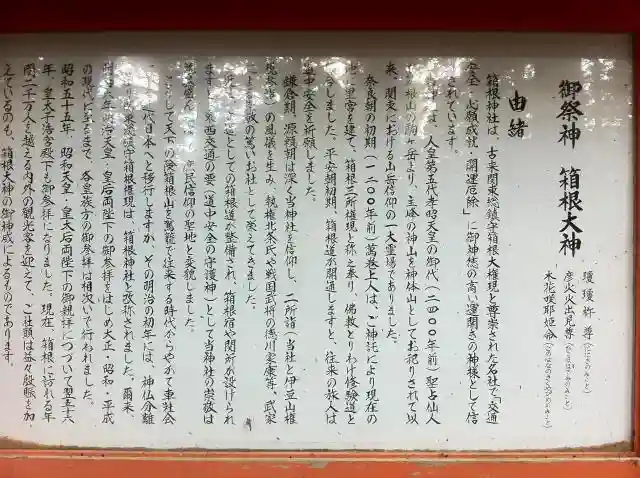 御祭神　箱根大神
瓊瓊杵尊(ににぎのみこと)
彦火火出見尊(ひこほほでみのみこと)
木花咲耶姫命(このはなさくやひめのみこと)
由緒
箱根神社は、古来関東総鎮守箱根大権現と尊崇された名社で、交通
安全・心願成就・開運厄除」に御神徳の高い運開きの神様として信
されています。
人皇第五代孝昭天皇の御代(二四〇〇年前)聖占仙人
箱根山の駒ヶ岳より、主峰の神山を神体山としてお祀りされて以
来、関東における山岳信仰の一大霊場でありました。
奈良朝の初期(一二〇〇年前)萬巻上人は、ご神託により現在の
に里宮を建て、箱根三所権現と称え奉り、佛教とりわけ修験道と
合しました。平安朝初期、箱根道が開通しますと、往来の旅人は
中安全を祈願しました。
鎌倉期、源頼朝は深く当神社を信仰し、二所詣(当社と伊豆山権
現参詣)の風儀を生み、執権北条氏や戦国武将の徳川家康等、武家
による崇敬の篤いお社として栄えてきました。
としての箱根道が整備され、箱根宿や関所が設けられ
ますと、東西交通の要(道中安全の守護神)として当神社の崇敬は
庶民信仰の聖地と変貌しました。
して天下の険箱根山を駕籠で往来する時代からやがて車社会
代日本へと移行しますが、その明治の初年には、神仏分離
より関東総鎮守箱根権現は、箱根神社と改称されました。爾来、
年明治天皇・皇后両陛下の御参拝をはじめ大正・昭和・平成
の現代に至るまで、各皇族方の御参拝は相次いで行われました。
昭和五十五年、昭和天皇・皇太后両陛下の御親拝につづいて翌五十六
年、皇太子浩宮殿下も御参拝になりました。現在、箱根を訪れる年
間二千万人を越える内外の観光客を迎えて、ご社頭は益々殷賑を加
えているのも、箱根大神の御神威によるものであります。